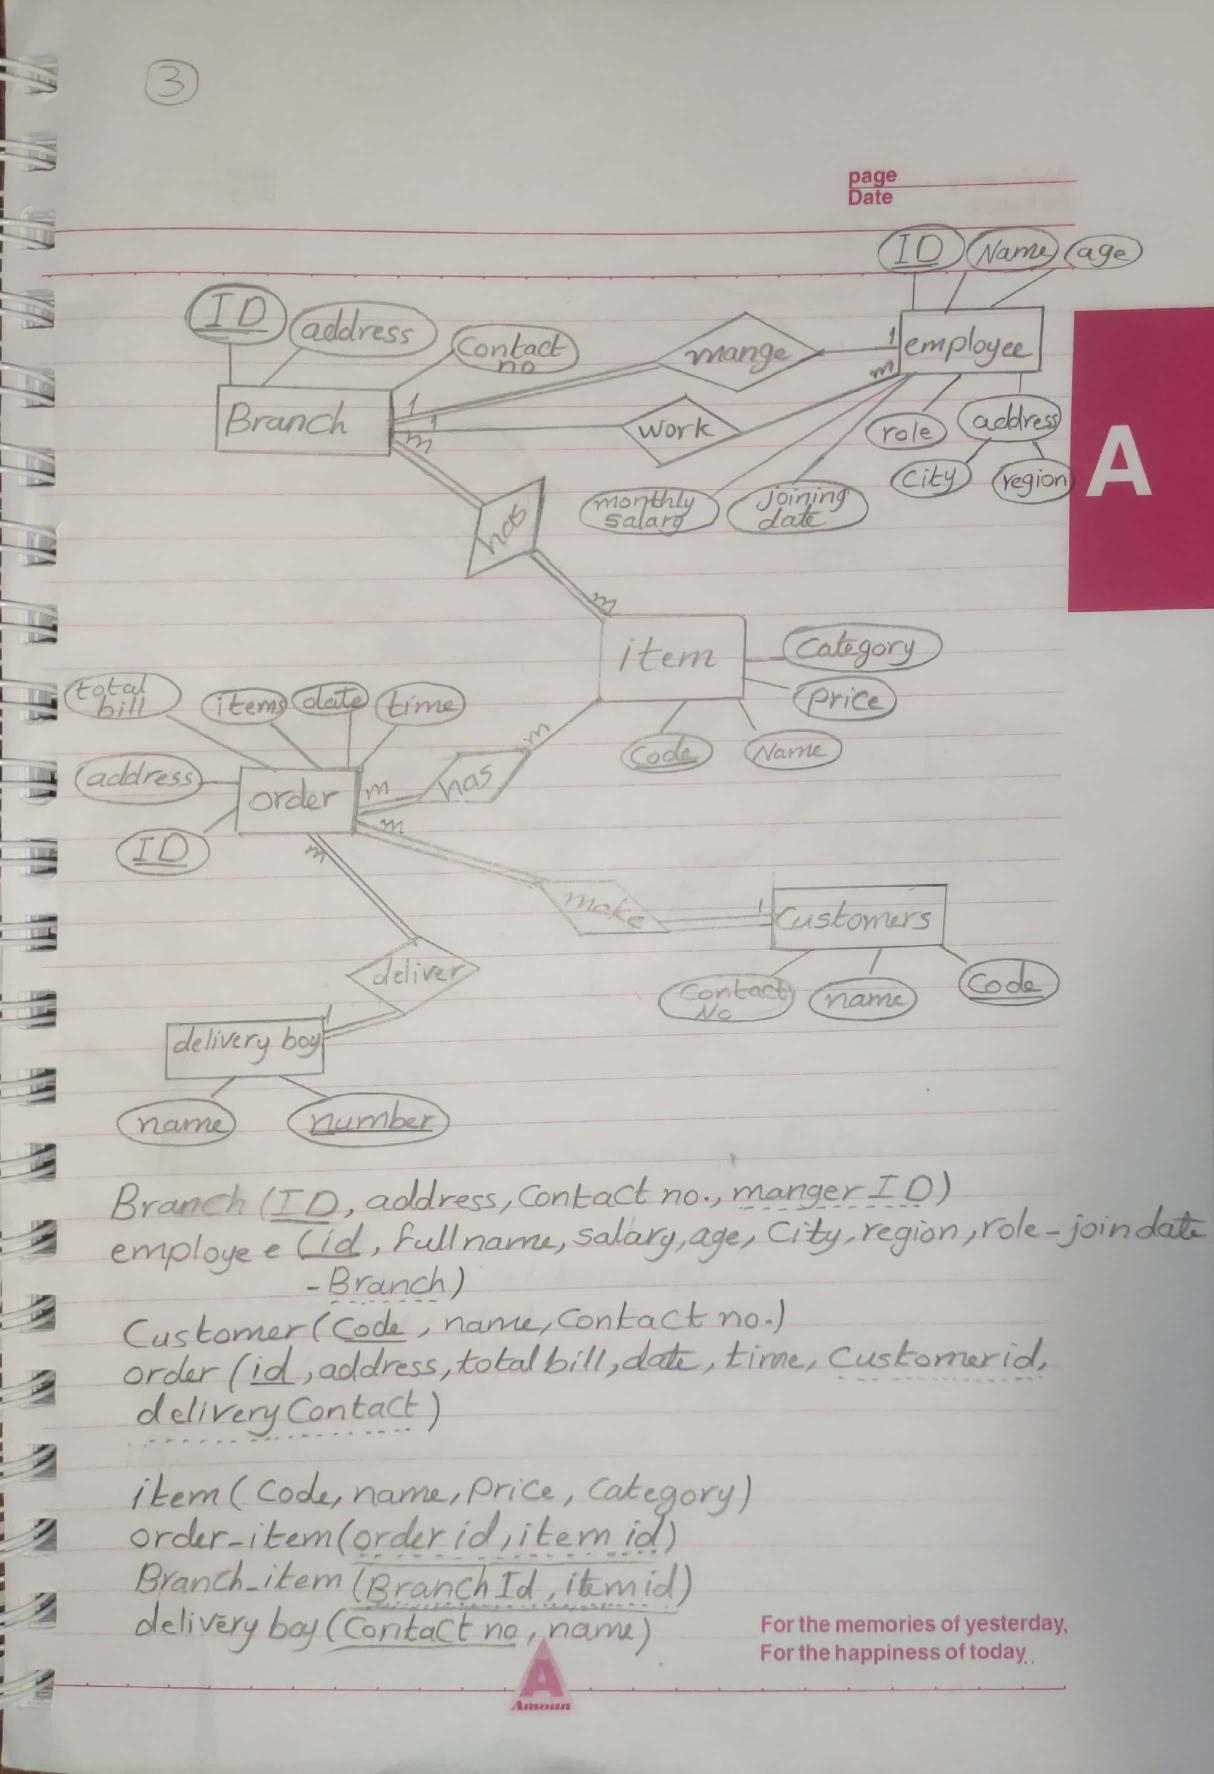 3
page
Date
ID Name age
ID address Contact no
mange 1 employee
1 m
Branch 1 work role address
m city region
monthly salary joining date
has
m
item Category
total bill items date time price
m Code Name
address order m has
m
ID m
make 1 Customers
deliver Contact No name Code
1
delivery boy
name number
Branch (ID, address, Contact no., manger ID)
employee (id, full name, salary, age, City, region, role - join date
- Branch)
Customer (Code, name, Contact no.)
order (id, address, total bill, date, time, Customer id,
delivery Contact)
item (Code, name, Price, Category)
order-item (order id, item id)
Branch-item (Branch Id, item id)
delivery boy (Contact no, name)
For the memories of yesterday,
For the happiness of today..
A
A
Amoun